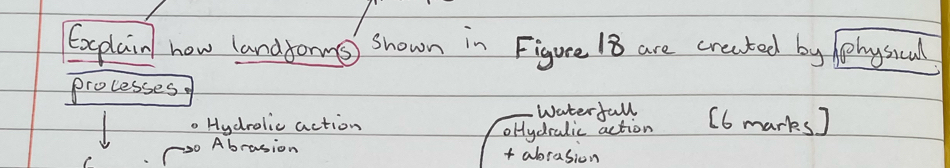 Explain how landforms shown in Figure 18 are created by physical
processes.
Waterfall [6 marks]
• Hydrolic action • Hydralic action
• Abrasion + abrasion